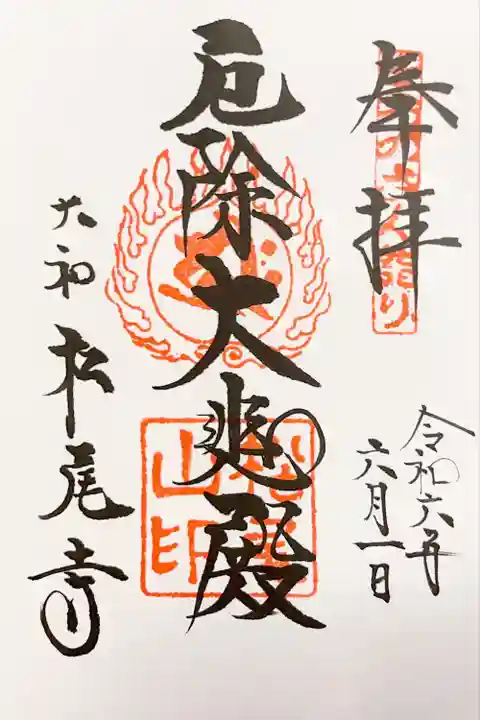 奉拝
令和六年
六月一日
厄除大悲殿
山印
大和 松尾寺